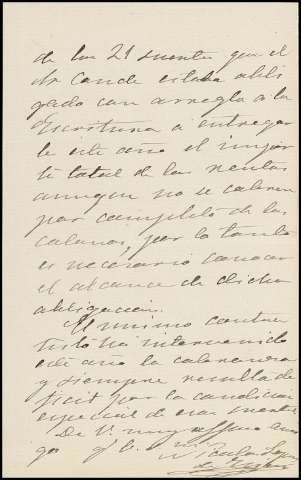 de las 21 suertes que el
Sr Conde estaba obli
gado con arreglo a la
Escritura a entregar
le este año el impor
te total de las rentas
aunque no se cobren
por completo de los
colonos, por lo tanto
es necesario conocer
el alcance de dicha
obligacion.
El mismo contra
tista ha intervenido
este año la cobranza
y siempre resulta de
ficit por la condicion
especial de esas suertes
De V. muy affmo ami
go q. b. s. m.